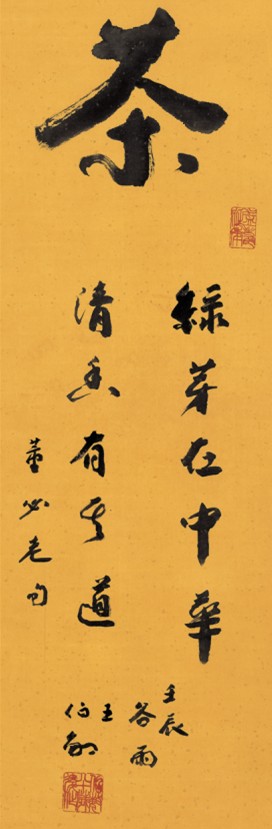 茶
綠芽在中華
清香有其道
董必老句
壬辰
谷雨
王
伯敏